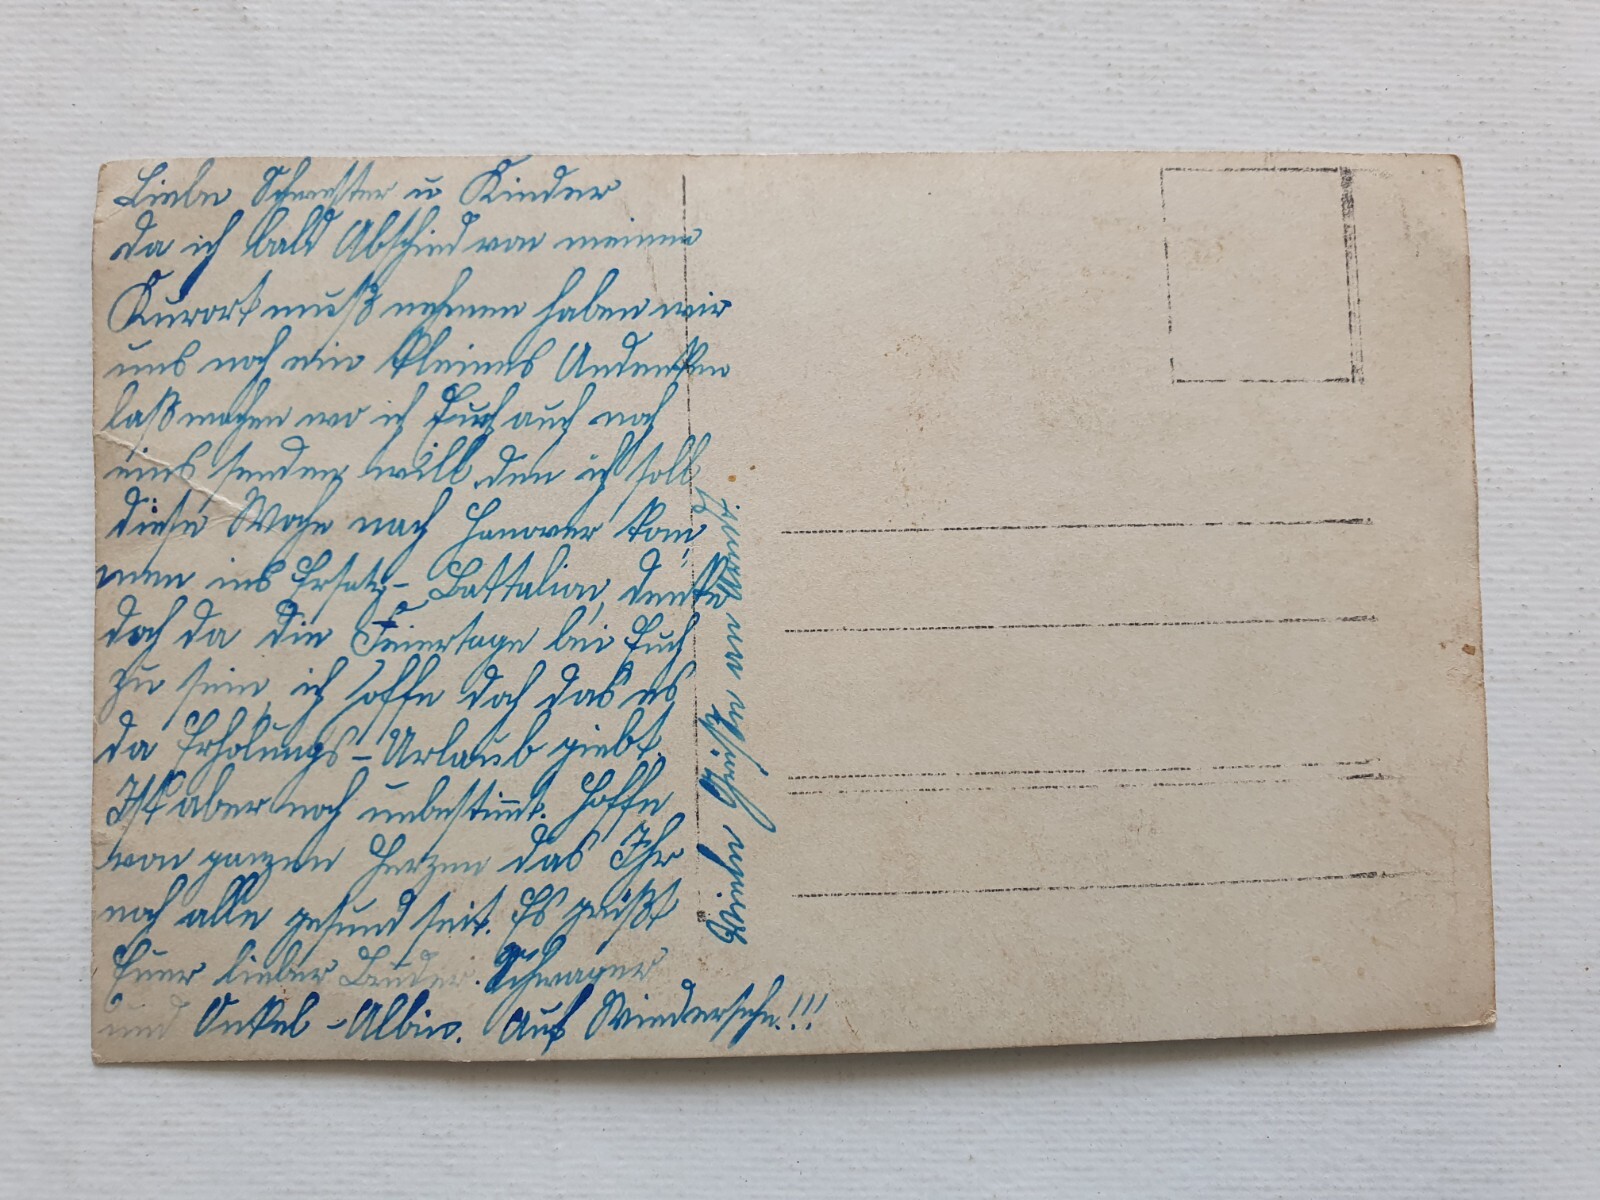 Liebe Schwester u Kinder
da ich bald Abschied von meinen
Kurort muß nehmen haben wir
uns noch ein kleines Andenken
laß machen wo ich Euch auch noch
eins senden will, den ich soll
diese Woche nach Hanover kom-
men ins Ersatz-Battalion, denke
doch da die Feiertage bei Euch
zu sein, ich hoffe doch das es
da Erholungs-Urlaub giebt.
Ist aber noch unbestimmt. Hoffe
von ganzen Herzen das Ihr
noch alle gesund seit. Es grüßt
Euer lieber Bruder. Schwager
und Onkel-Albin. Auf Wiedersehn!!!
Viele Grüße an